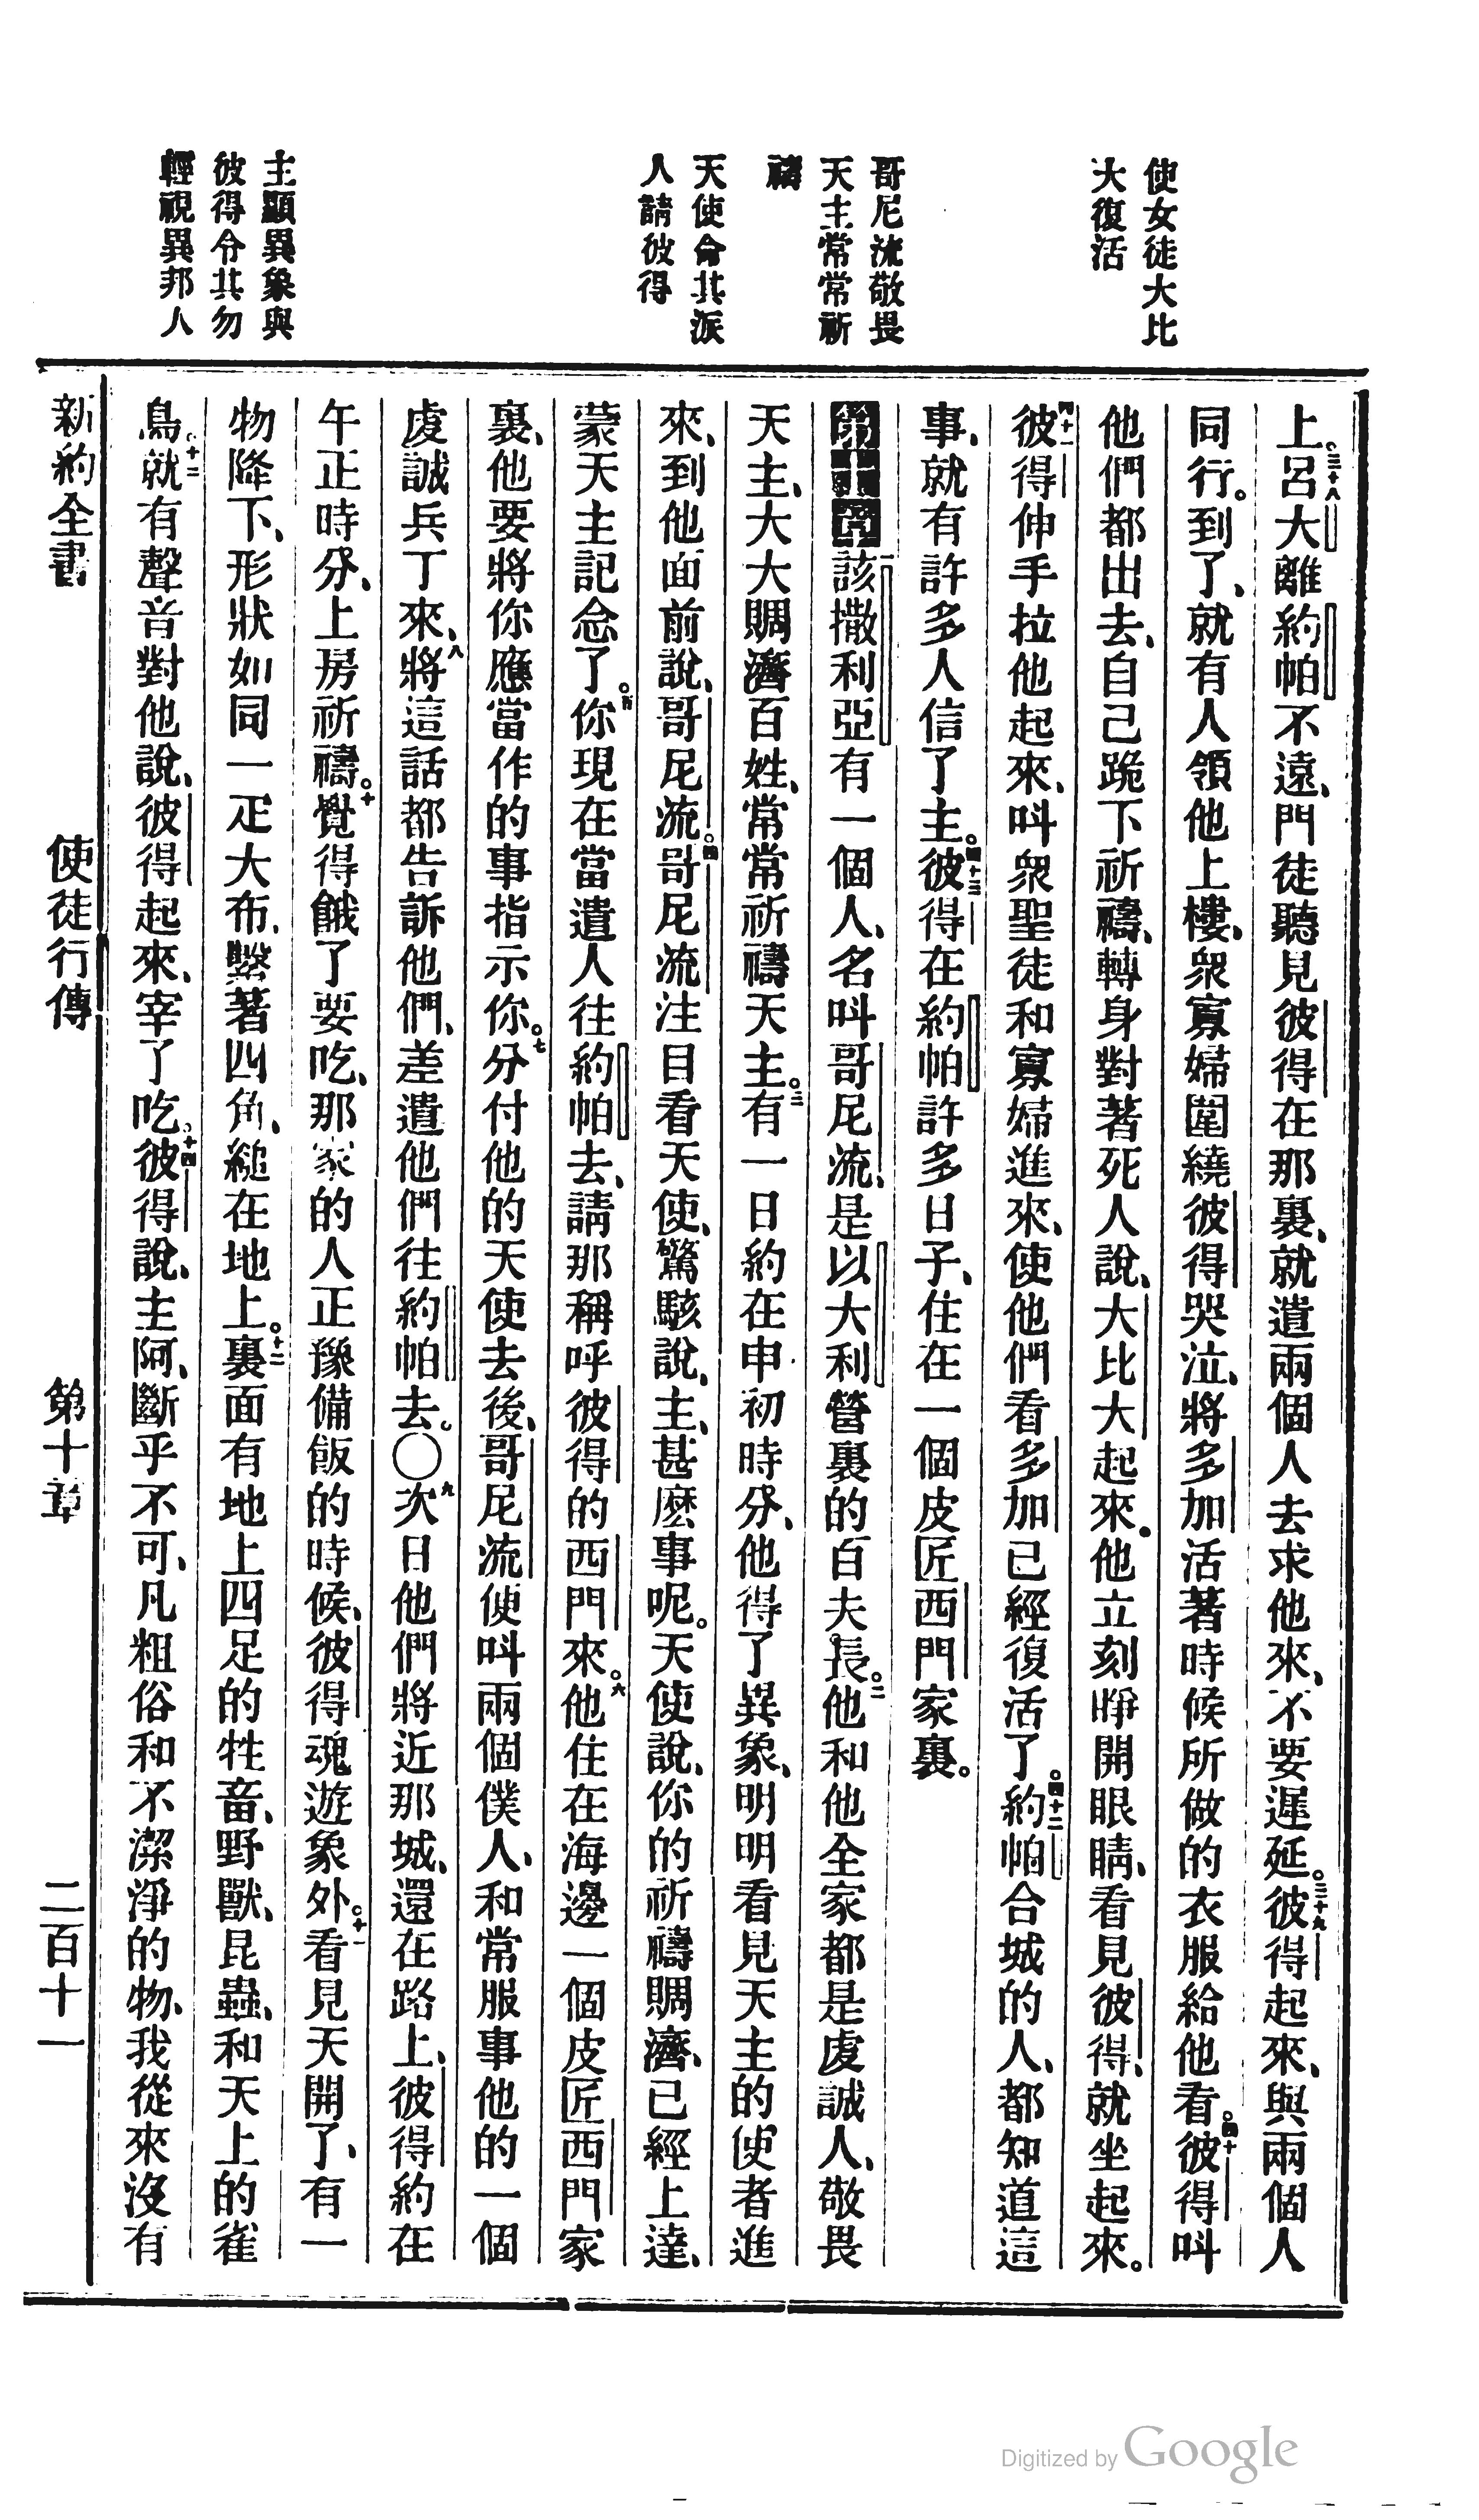 使女徒大比
大復活
哥尼流敬畏
天主常常祈
禱
天使命其派
人請彼得
主顯異象與
彼得令其勿
輕視異邦人
上。三十八呂大離約帕不遠、門徒聽見彼得在那裏、就遣兩個人去求他來、不要遲延。三十九彼得起來、與兩個人
同行。到了、就有人領他上樓、衆寡婦圍繞彼得哭泣、將多加活著時候所做的衣服給他看。四十彼得叫
他們都出去、自己跪下祈禱、轉身對著死人說、大比大起來。他立刻睜開眼睛、看見彼得、就坐起來。
四十一彼得伸手拉他起來、叫衆聖徒和寡婦進來、使他們看多加已經復活了。四十二約帕合城的人、都知道這
事、就有許多人信了主。四十三彼得在約帕許多日子、住在一個皮匠西門家裏。
第十章 一該撒利亞有一個人、名叫哥尼流、是以大利營裏的百夫長。二他和他全家都是虔誠人、敬畏
天主、大大賙濟百姓、常常祈禱天主。三有一日約在申初時分、他得了異象、明明看見天主的使者進
來、到他面前說、哥尼流。四哥尼流注目看天使、驚駭說、主、甚麽事呢。天使說、你的祈禱賙濟、已經上達、
蒙天主記念了。五你現在當遣人往約帕去、請那稱呼彼得的西門來。六他住在海邊一個皮匠西門家
裏、他要將你應當作的事指示你。七分付他的天使去後、哥尼流便叫兩個僕人、和常服事他的一個
虔誠兵丁來、八將這話都告訴他們、差遣他們往約帕去。〇九次日他們將近那城、還在路上、彼得約在
午正時分、上房祈禱。十覺得餓了要吃、那家的人正豫備飯的時候、彼得魂遊象外。十一看見天開了、有一
物降下、形狀如同一疋大布、繫著四角、縋在地上。十二裏面有地上四足的牲畜、野獸、昆蟲、和天上的雀
鳥。十三就有聲音對他說、彼得起來、宰了吃。十四彼得說、主阿、斷乎不可、凡粗俗和不潔淨的物、我從來沒有
新約全書 使徒行傳 第十章 二百十一
Digitized by Google